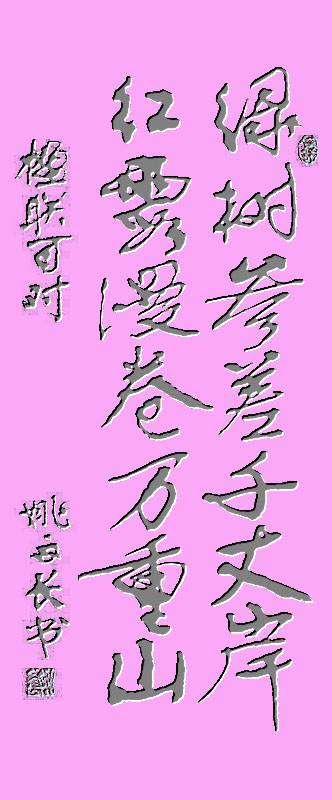 绿树参差千丈岸
红霞漫卷万重山
楹联一对
姚云长书